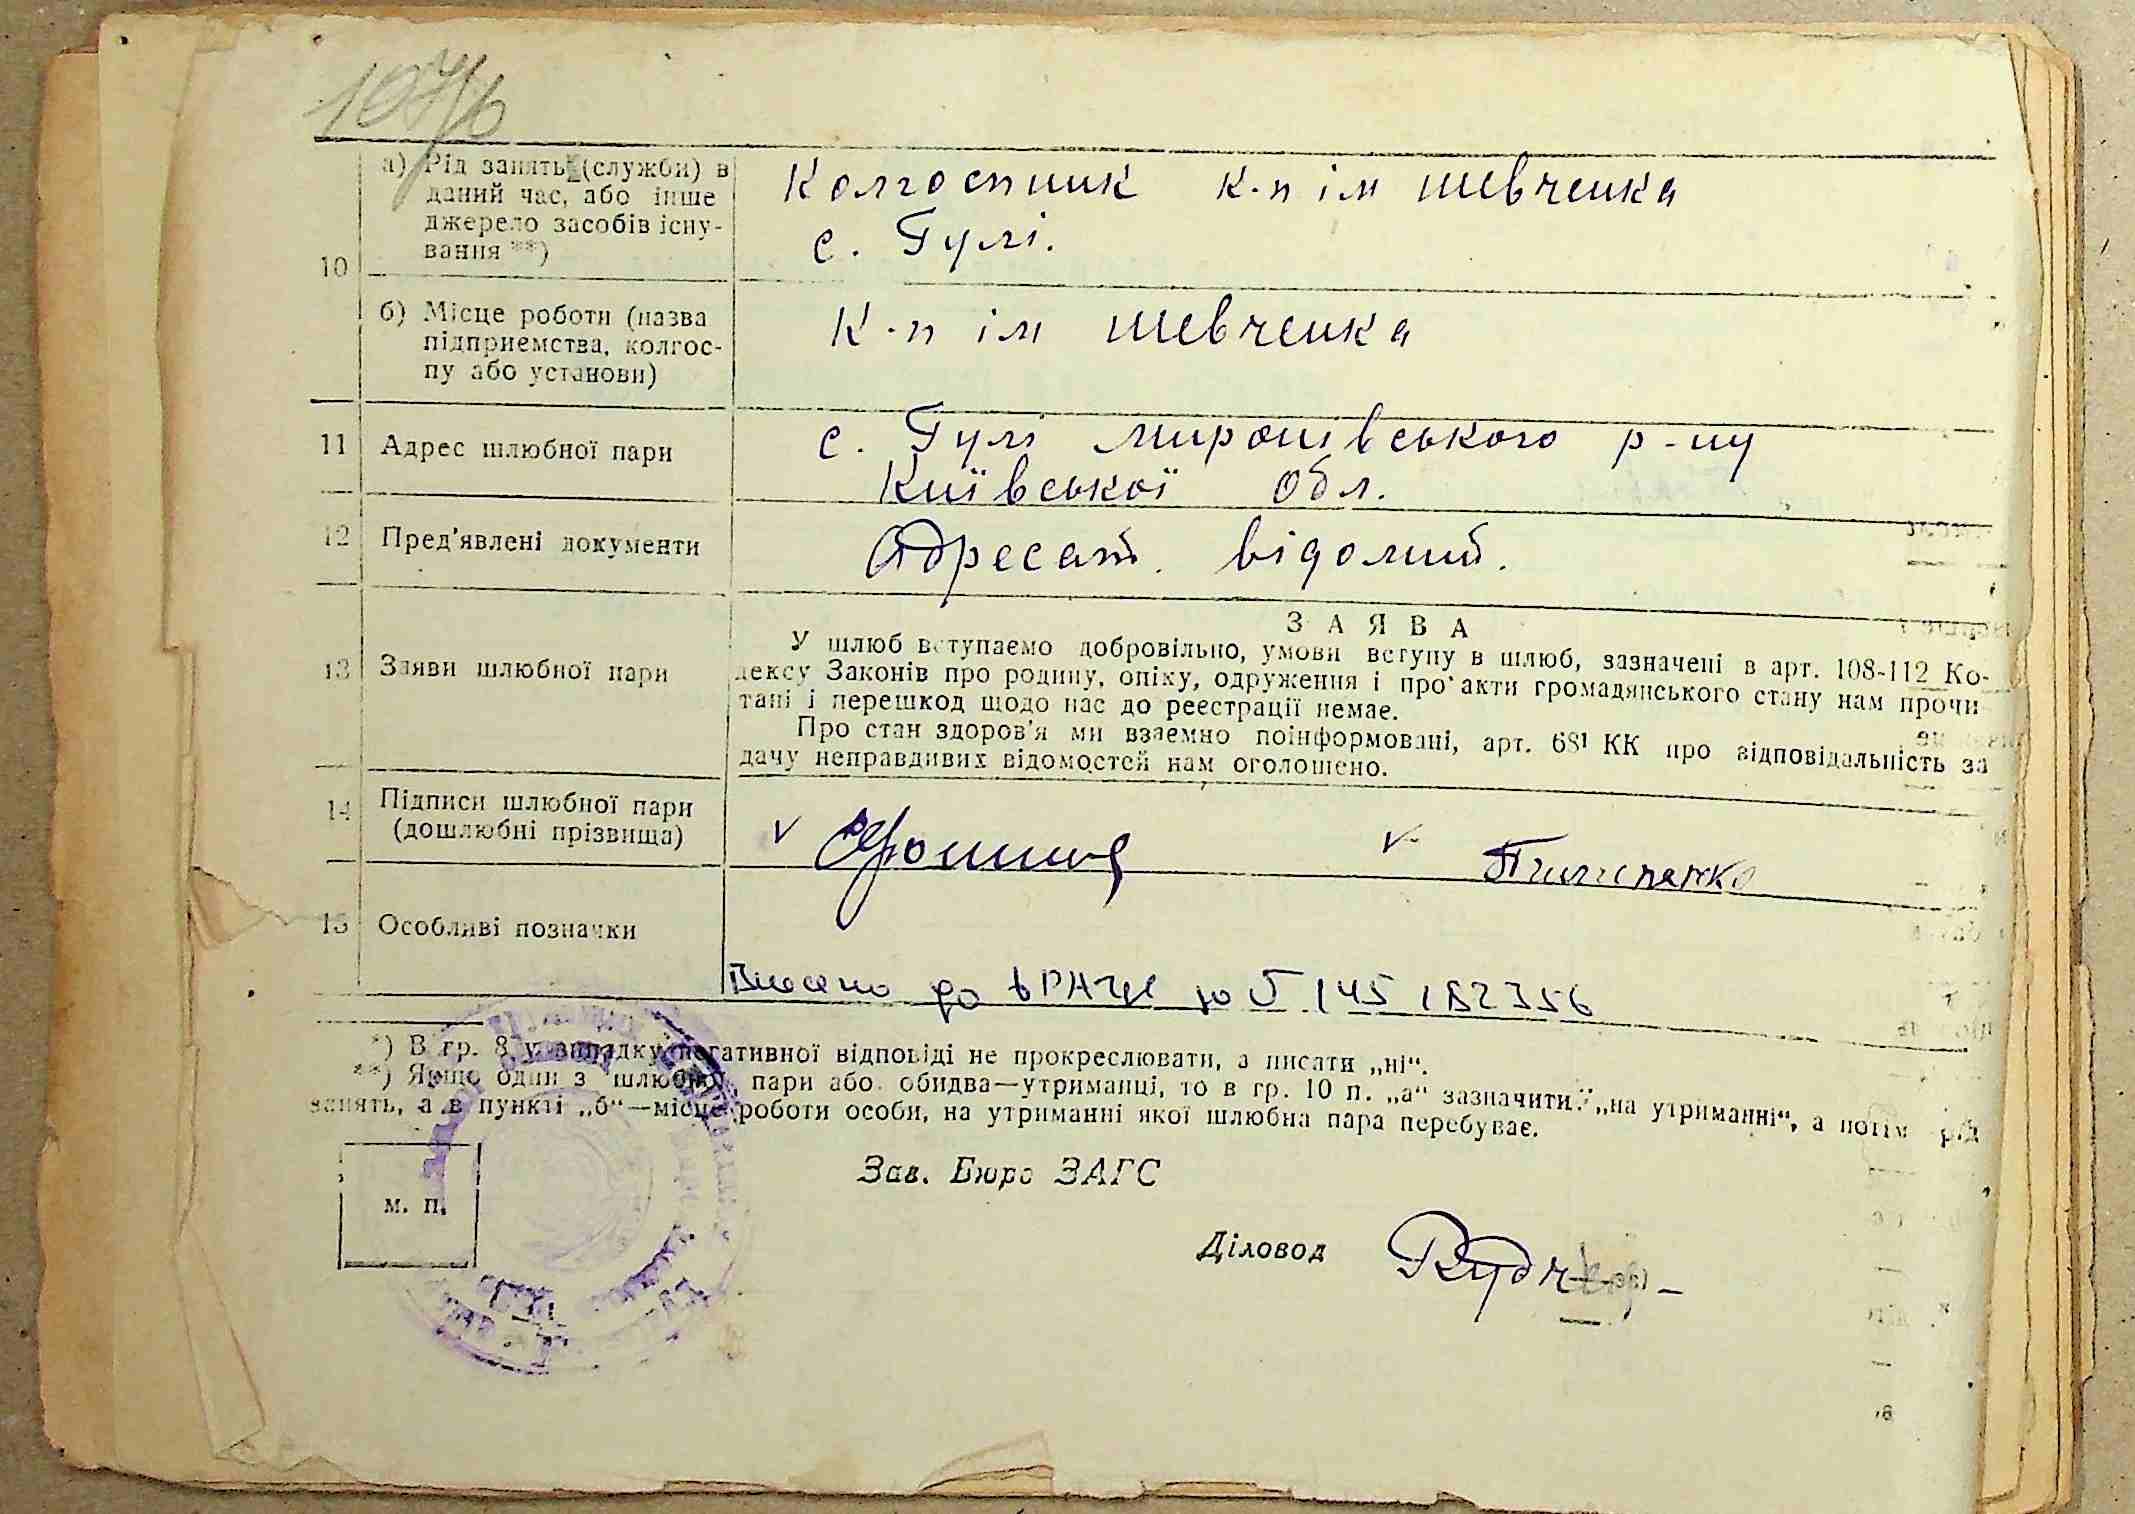 107/6
а) Рід занять (служби) в
даний час, або інше
джерело засобів існу-
вання **)
Колгоспник к-п ім Шевченка
с. Гулі.
10
б) Місце роботи (назва
підприємства, колгос-
пу або установи)
К-п ім Шевченка
11 Адрес шлюбної пари
с. Гулі Миронівського р-ну
Київської обл.
12 Пред'явлені документи
Адресат. відомий.
13 Заяви шлюбної пари
ЗАЯВА
У шлюб вступаємо добровільно, умови вступу в шлюб, зазначені в арт. 108-112 Ко-
дексу Законів про родину, опіку, одруження і про акти громадянського стану нам прочи
тані і перешкод щодо нас до реєстрації немає.
Про стан здоров'я ми взаємно поінформовані, арт. 68¹ КК про відповідальність за
дачу неправдивих відомостей нам оголошено.
14 Підписи шлюбної пари
(дошлюбні прізвища)
V V
15 Особливі позначки
Внесено до 145 182356
*) В гр. 8 у випадку негативної відповіді не прокреслювати, а писати „ні“.
**) Якщо один з шлюбної пари або обидва—утриманці, то в гр. 10 п. „а“ зазначити: „на утриманні“, а потім рід
занять, а в пункті „б“—місце роботи особи, на утриманні якої шлюбна пара перебуває.
м. п.
Зав. Бюро ЗАГС
Діловод